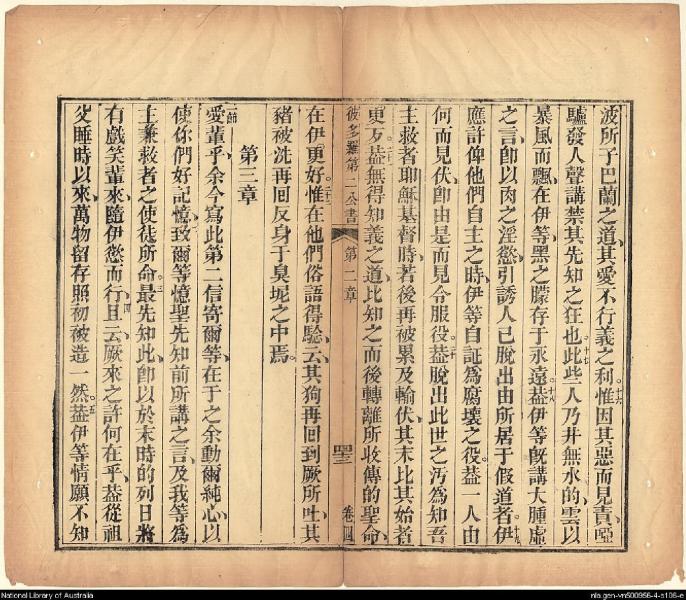 波所子巴蘭之道其愛不行義之利十六惟因其惡而見責啞
驢發人聲講禁其先知之狂也十七此些人乃井無水的雲以
暴風而飄在伊等黑之朦存于永遠十八葢伊等旣講大腫虛
之言卽以肉之淫慾引誘人已脫出由所居于假道者十九伊
應許俾他們自主之時伊等自証為腐壞之役葢一人由
何而見伏卽由是而見令服役二十葢脫出此世之污為知吾
主救者耶穌基督時若後再被累及輸伏其末比其始者
更歹葢無得知義之道比知之而後轉離所收傳的聖命
彼多羅第二公書 第二章 聖 卷四
在伊更好二二惟在他們俗語得騐云其狗再回到厥所吐其
豬被洗再回反身于臭坭之中焉
第三章
一節愛輩乎余今寫此第二信寄爾等在于之余動爾純心以
使你們好記憶致爾等憶聖先知前所講之言及我等為
主兼救者之使徒所命三最先知此卽以於末時的列日將
有戲笑輩來隨伊慾而行四且云厥來之許何在乎葢從祖
父睡時以來萬物留存照初被造一然五葢伊等情願不知
National Library of Australia
nla.gen-vn500956-4-s106-e